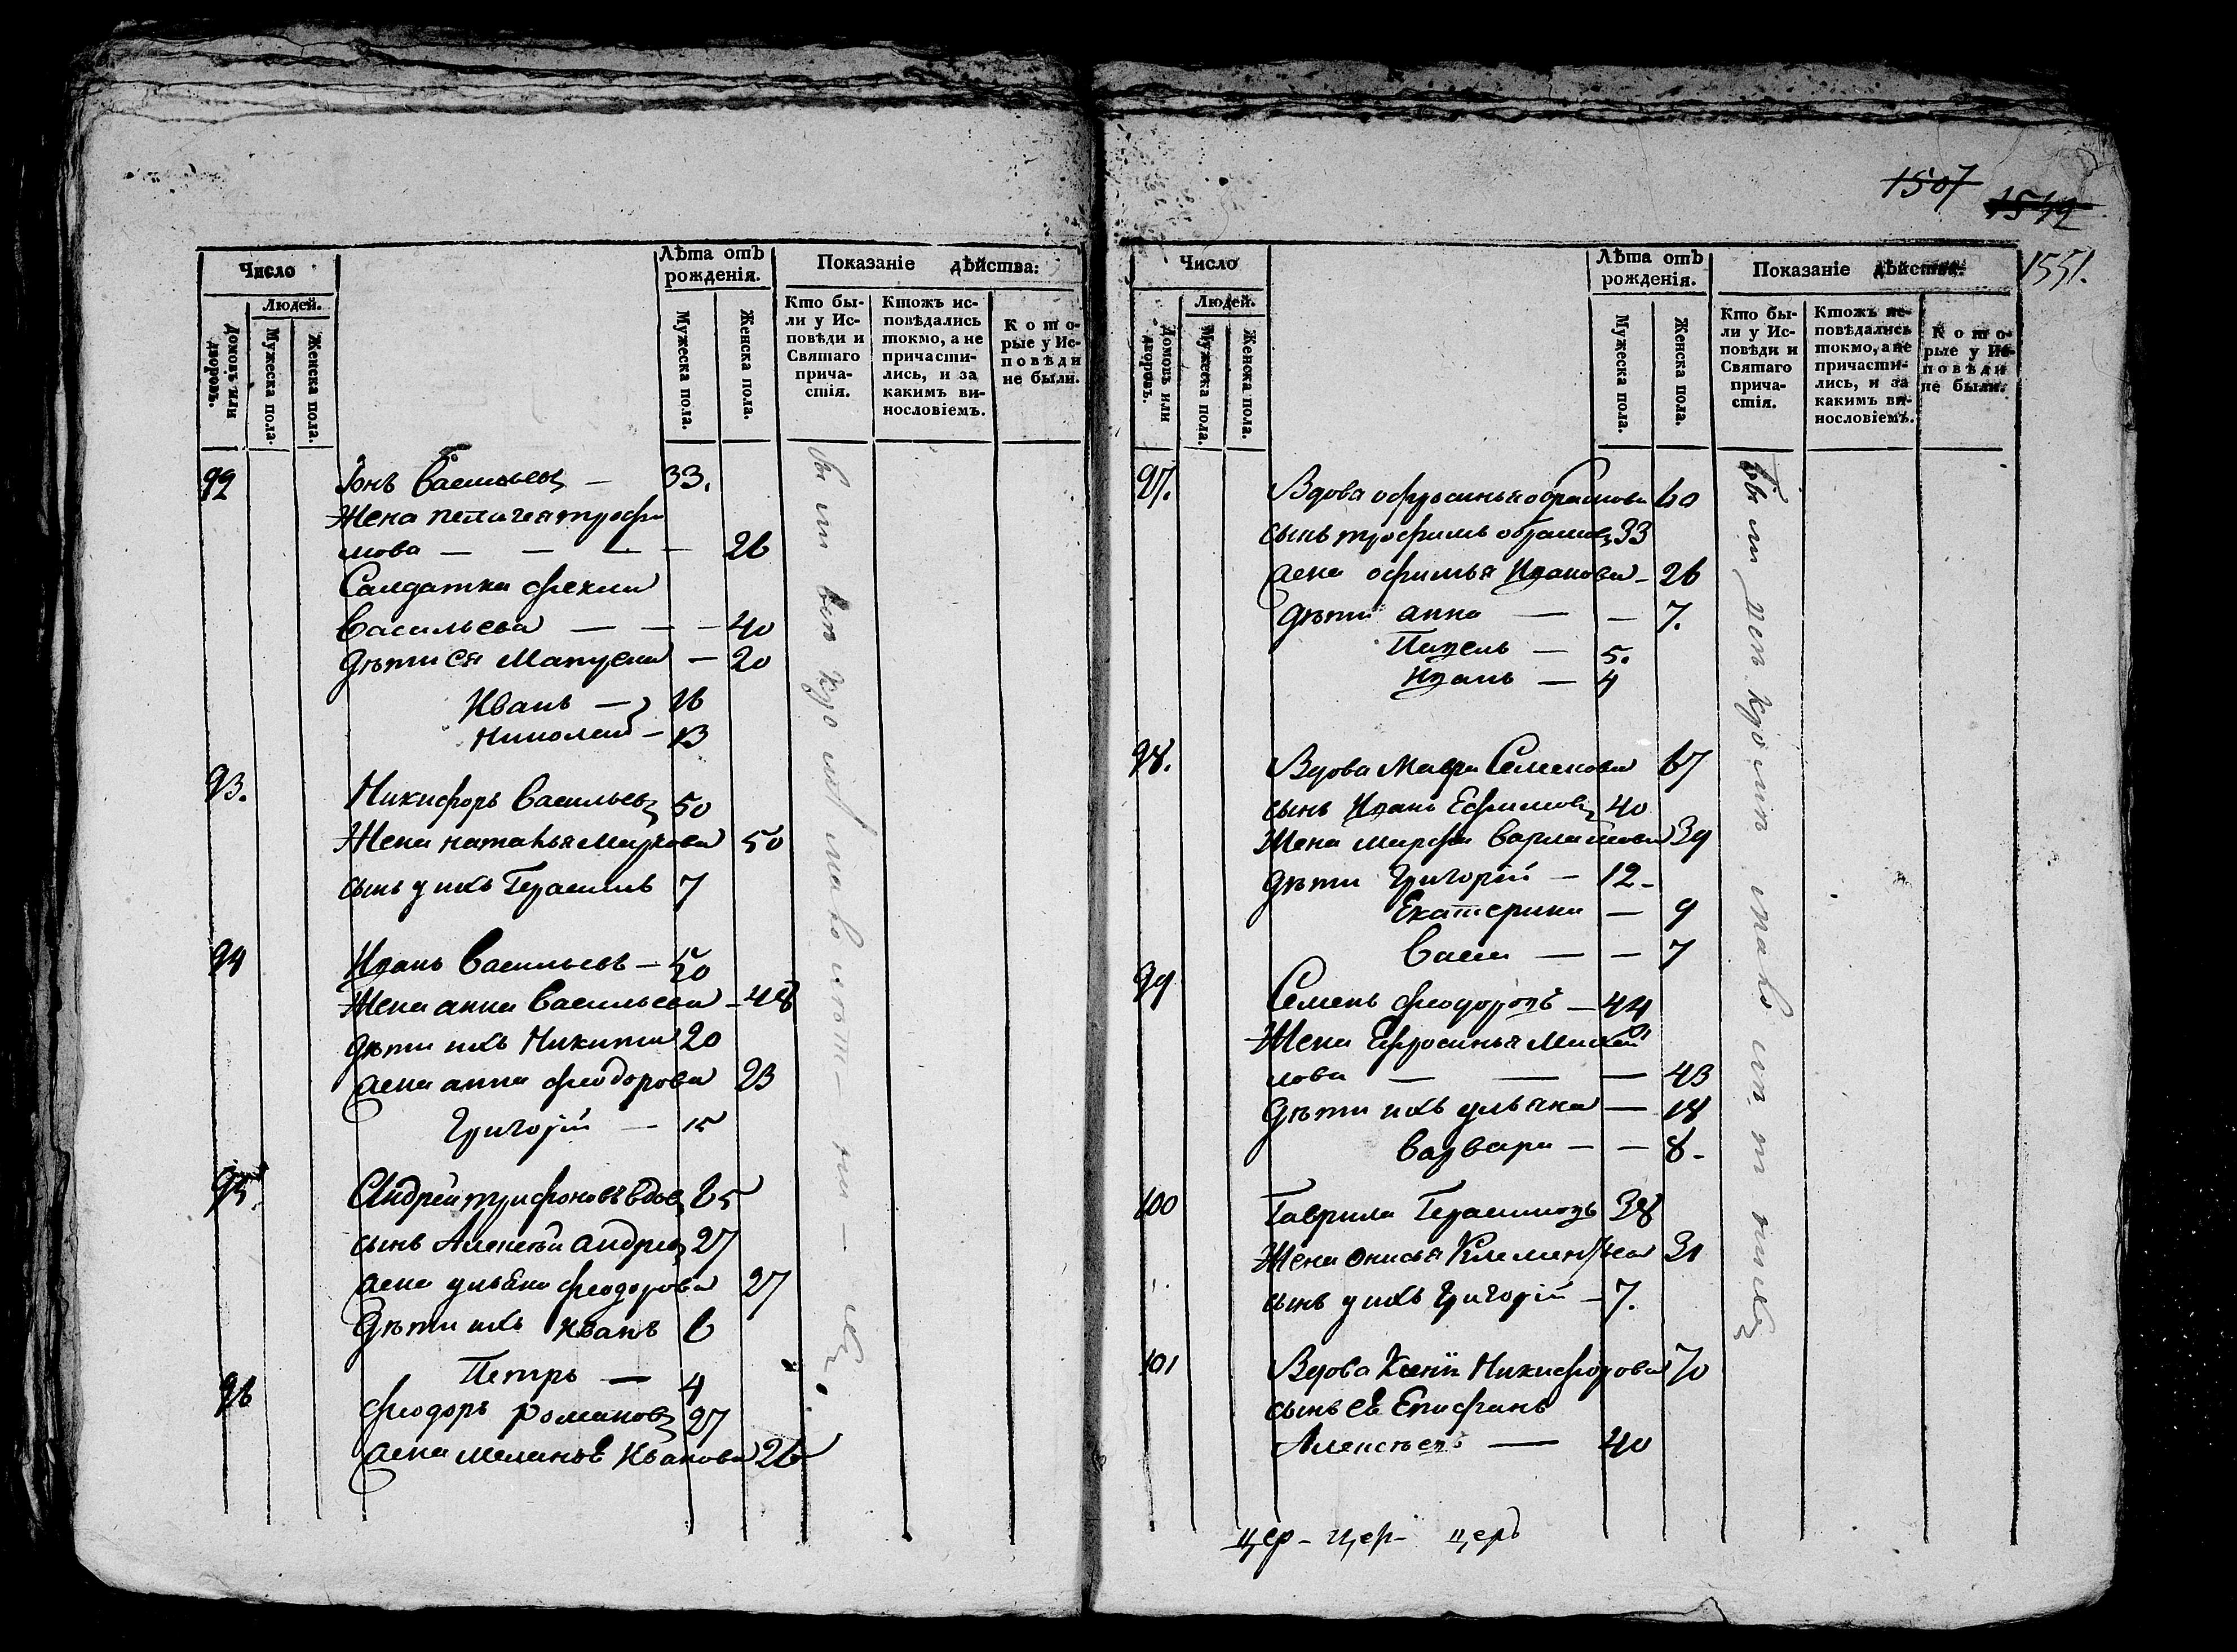 Число
Людей.
Домовъ или дворовъ.
Мужеска пола.
Женска пола.
Лѣта отъ рожденія.
Мужеска пола.
Женска пола.
Показаніе дѣйства:
Кто бы-
ли у Ис-
повѣди и
Святаго
прича-
стія.
Ктожъ ис-
повѣдались
токмо, а не
причасти-
лись, и за
какимъ ви-
нословіемъ.
Кото-
рые у Ис-
повѣди
не были.
92 Васильевъ — 33.
Жена Трофи
мова — — — — 26
Салдатка
Васильева — — — 40
дѣти ея — 20
Иванъ — 16
Николай — 13
93. Никифоръ Васильевъ 50
Жена наталья Маркова 50
сынъ у нихъ Герасимъ 7
94 Иванъ Васильевъ — 50
Жена анна Васильева — 48
дѣти ихъ Никита 20
жена анна феодорова 23
Григорій — 15
95. Андрей трифоновъ вдов 65
сынъ Алексѣй андреев 27
жена ульяна феодорова 27
дѣти ихъ Иванъ 6
Петръ — 4
96 феодоръ романовъ 27
жена Иванова 26
1507
1542
1551.
Число
Людей.
Домовъ или дворовъ.
Мужеска пола.
Женска пола.
Лѣта отъ рожденія.
Мужеска пола.
Женска пола.
Показаніе дѣйства:
Кто бы-
ли у Ис-
повѣди и
Святаго
прича-
стія.
Ктожъ ис-
повѣдались
токмо, а не
причасти-
лись, и за
какимъ ви-
нословіемъ.
Кото-
рые у Ис-
повѣди
не были.
97. Вдова офросинья 60
сынъ трофимъ 33
жена офимья Иванова — 26
дѣти анна — — 7.
Павелъ — 5.
Иванъ — 4
98. Вдова Мавра Семенова 67
сынъ Иванъ Ефимовъ 40
Жена марфа Варламова 39
дѣти Григорій — 12 -
Екатерина — 9
Васса — — 7
99 Семенъ феодоровъ — 44
Жена Ефросинья Михай
лова — — — 43
дѣти ихъ ульяна — 18
Варвара — — 8 -
100 Гаврила Герасимовъ 38
Жена онисья 31
сынъ у нихъ Григорій — 7.
101 Вдова Никифорова 70
сынъ ея Епифанъ
Алексѣевъ — 40
цер - цер - церъ